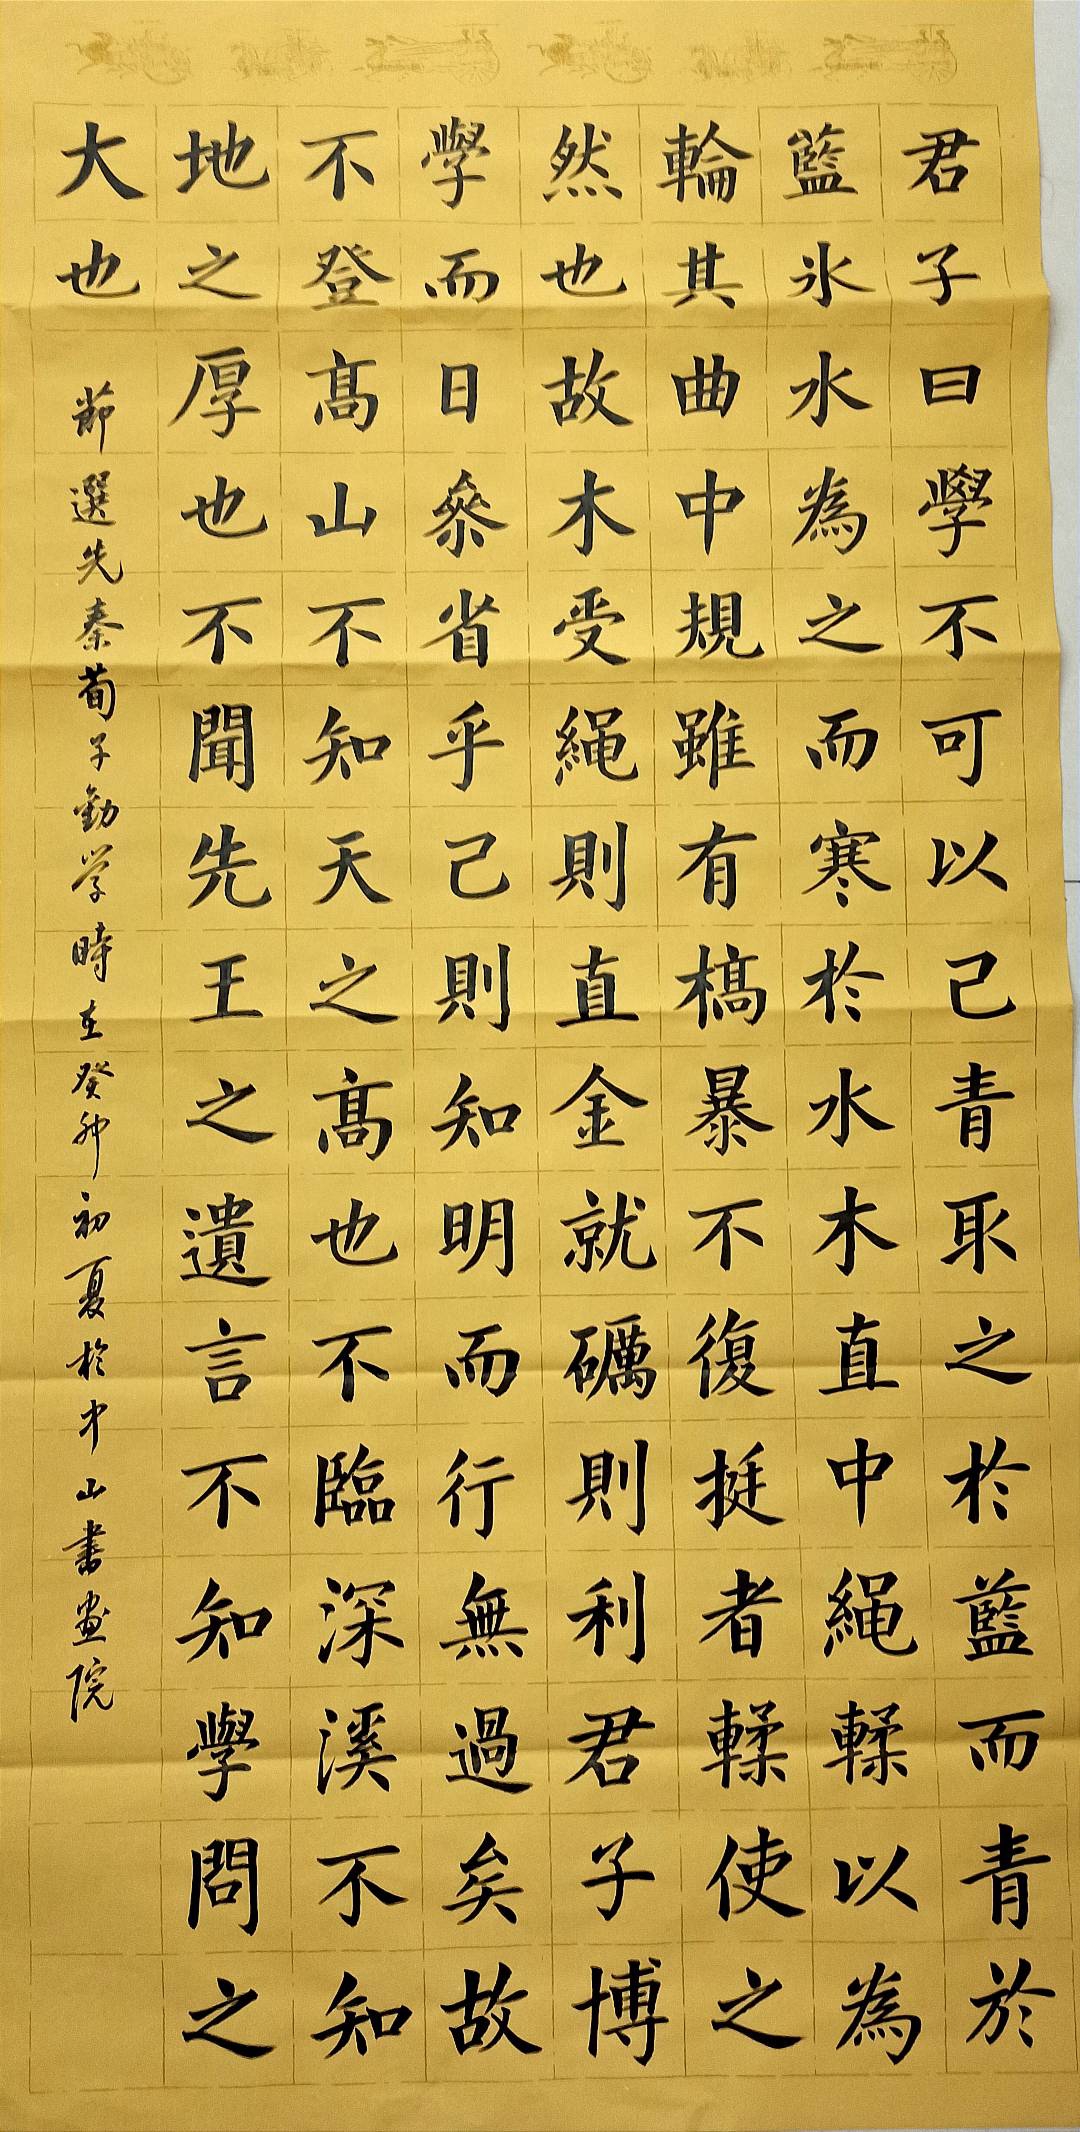 君子曰學不可以己青取之於藍而青於
藍氷水為之而寒於水木直中繩輮以為
輪其曲中規雖有槁暴不復挺者輮使之
然也故木受繩則直金就礪則利君子博
學而日叅省乎己則知明而行無過矣故
不登高山不知天之高也不臨深溪不知
地之厚也不聞先王之遺言不知學問之
大也
節選先秦荀子勸学時在癸卯初夏於中山書画院